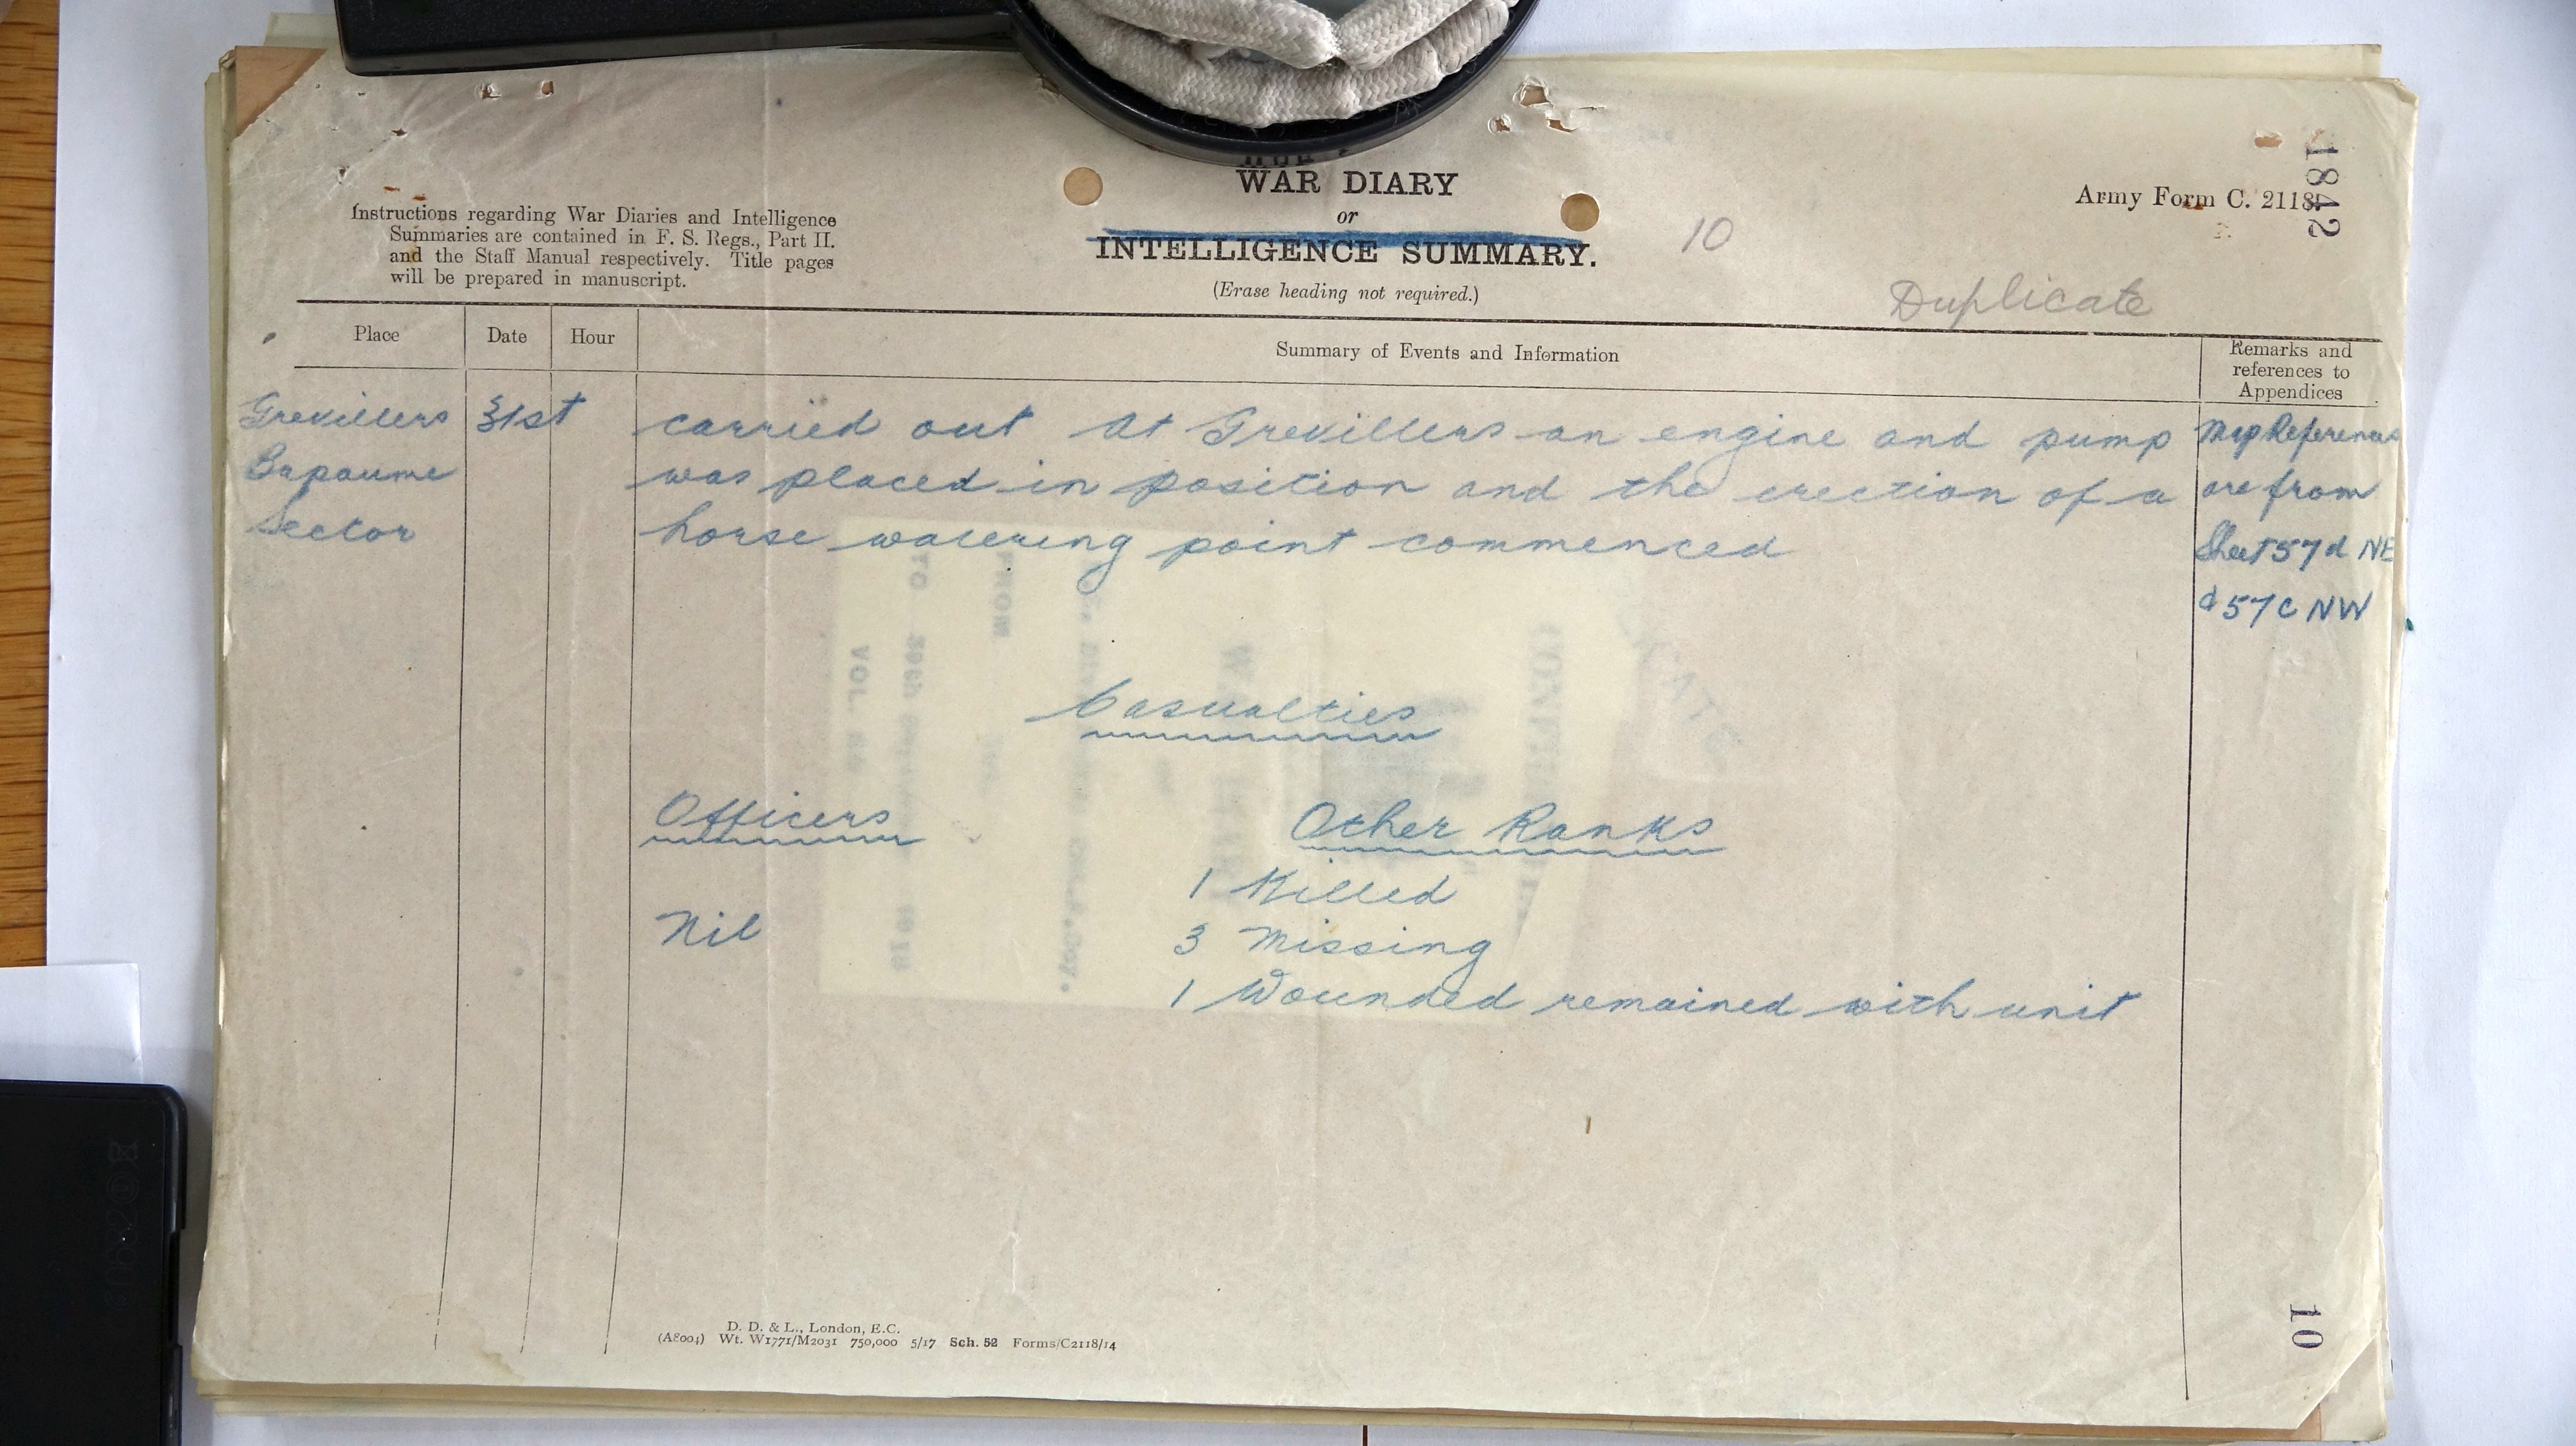 WAR DIARY
or
INTELLIGENCE SUMMARY.
(Erase heading not required.)
Instructions regarding War Diaries and Intelligence
Summaries are contained in F. S. Regs., Part II.
and the Staff Manual respectively. Title pages
will be prepared in manuscript.
10
Army Form C. 2118.
1842
Duplicate
Place Date Hour Summary of Events and Information Remarks and
references to
Appendices
Grevillers 31st carried out At Grevillers an engine and pump Map References
Bapaume was placed in position and the erection of a are from
Sector horse watering point commenced Sheet 57d NE
& 57c NW
Casualties
Officers Other Ranks
1 Killed
Nil 3 Missing
1 Wounded remained with unit
D. D. & L., London, E.C.
(A8004) Wt. W1771/M2031 750,000 5/17 Sch. 52 Forms/C2118/14
10